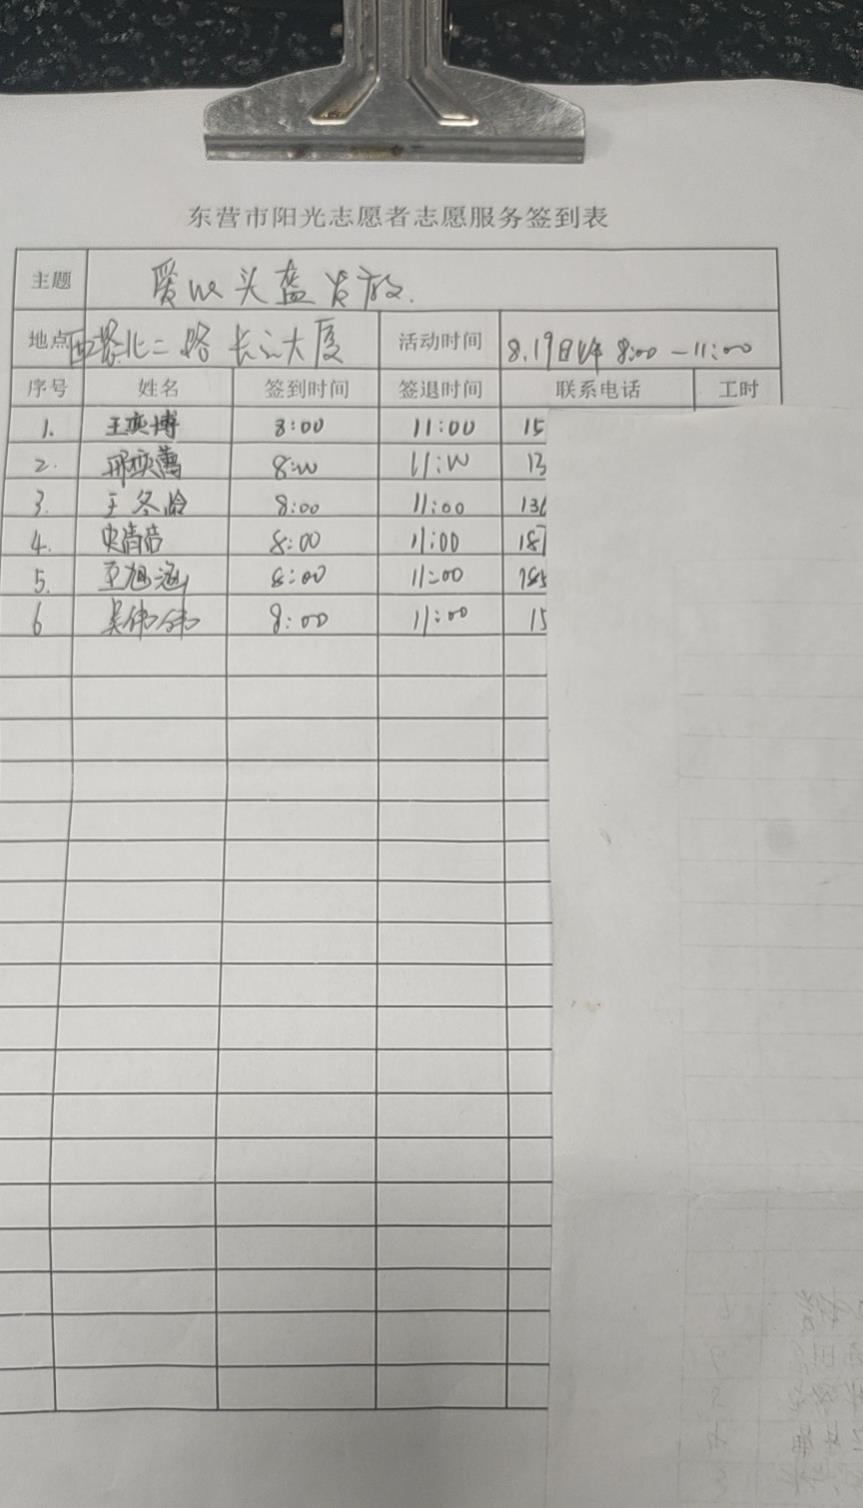 东营市阳光志愿者志愿服务签到表
主题 爱心头盔发放.
地点 北二路 长江大厦 活动时间 8.19日上午 8:00-11:00
序号 姓名 签到时间 签退时间 联系电话 工时
1. 王奕博 8:00 11:00 15
2. 邢奕 8:00 11:00 13
3. 王冬 8:00 11:00 136
4. 史清 8:00 11:00 187
5. 王旭涵 8:00 11:00 185
6 吴伟伟 8:00 11:00 15